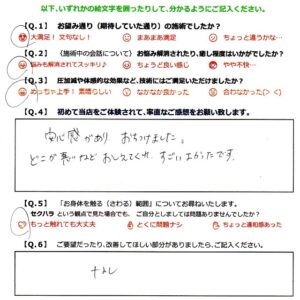 以下、いずれかの絵文字を囲ったりして、分かるようにご記入ください。
【Q.1】 お望み通り（期待していた通り）の施術でしたか？
大満足！ 文句なし！ まあまあ満足 ちょっと違うかな…
【Q.2】 （施術中の会話について）お悩み解消されたり、癒し程度はいかがでしたか？
悩みも解消されてスッキリ♪ ちょうど良い感じ やや不快…
【Q.3】 圧加減や体感的な効果など、技術にはご満足いただけましたか？
めっちゃ上手！ 素晴らしい なかなか良かった 合わなかった(> <)
【Q.4】 初めて当店をご体験されて、率直なご感想をお願い致します。
安心感があり おちつけました。
どこが悪いなど おしえてくれ すごいよかったです。
【Q.5】 「お身体を触る（さわる）範囲」についてお尋ねいたします。
セクハラ という観点で見た場合でも、ご自分としましては問題ありませんでしたか？
もっと触れても大丈夫 とくに問題ナシ ちょっと違和感あった
【Q.6】 ご要望だったり、改善してほしい部分がありましたら、ご記入ください。
なし